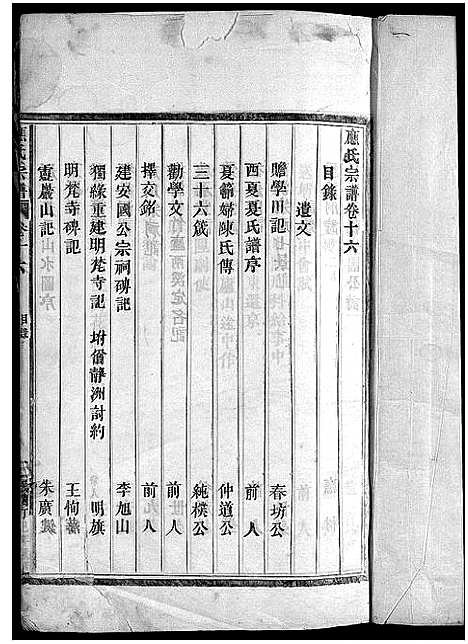 應氏宗譜卷十六
目錄
遺文
贍學田記 春坊公
西夏夏氏譜序 前人
夏節婦陳氏傳 仲道公
三十六歲 純樸公
勸學文 前人
擇交銘 前人
建安國公宗祠碑記 李旭山
獨緣重建明梵寺記 坿僧靜洲討約 明旗
明梵寺碑記 王恂
靈巖山記 朱廣
應氏宗譜 卷十六 目錄